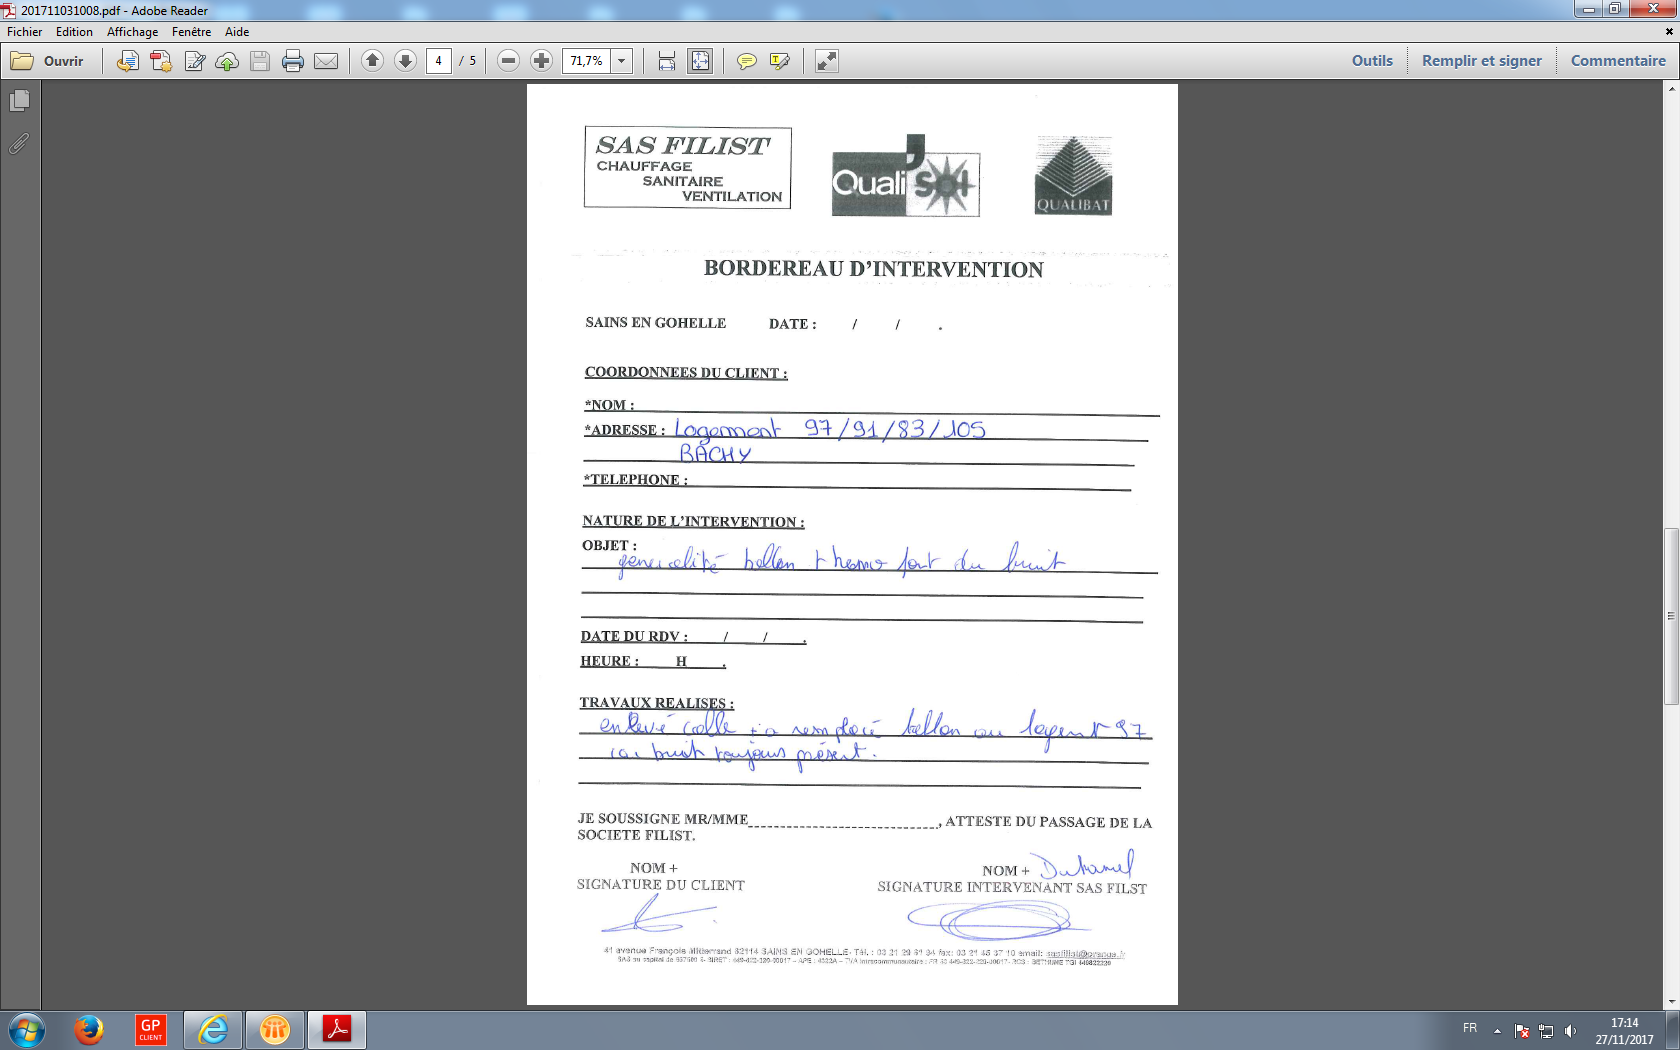 201711031008.pdf - Adobe Reader
Fichier Edition Affichage Fenêtre Aide
Ouvrir 4 / 5 71,7% Outils Remplir et signer Commentaire
SAS FILIST
CHAUFFAGE
SANITAIRE
VENTILATION
Quali'Sol
QUALIBAT
BORDEREAU D'INTERVENTION
SAINS EN GOHELLE DATE : / / .
COORDONNEES DU CLIENT :
*NOM :
*ADRESSE : Logement 97/91/83/105
BACHY
*TELEPHONE :
NATURE DE L'INTERVENTION :
OBJET :
generalité ballon thermo font du bruit
DATE DU RDV : / / .
HEURE : H .
TRAVAUX REALISES :
enlevé calle + a remplacé ballon au logent n° 97
car bruit toujours présent.
JE SOUSSIGNE MR/MME__________________________, ATTESTE DU PASSAGE DE LA
SOCIETE FILIST.
NOM +
SIGNATURE DU CLIENT
NOM + Duhamel
SIGNATURE INTERVENANT SAS FILST
avenue François Mitterrand 62114 SAINS EN GOHELLE- Tél. : 03 21 29 fax: 03 21 45 37 10 email:
SAS au capital de SIRET : APE : 4322A – TVA Intracommunautaire : FR RCS : BETHUNE TGI
GP
CLIENT
FR
17:14
27/11/2017